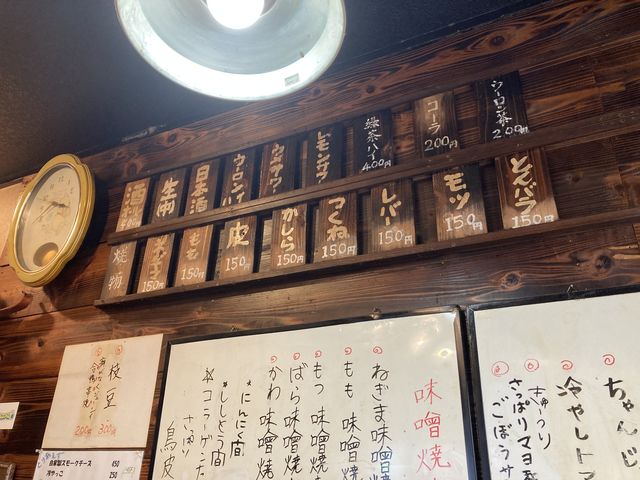 ウーロン茶
200円
コーラ
200円
緑茶ハイ
400円
レモンサワー
ウーロンハイ
日本酒
生
酒
とんバラ
150円
モツ
150円
レバー
150円
つくね
150円
かしら
150円
皮
150
もも
150円
150円
焼物
味噌焼
ねぎま味噌焼
もも 味噌焼
もつ 味噌焼
ばら味噌焼
かわ 味噌焼
にんにく間
ししとう間
コラーゲン
さっぱり
鳥皮
冷やしト
さっぱりマヨ
ごぼうサ
枝豆
300円
200円
自家製スモークチーズ
450
冷やっこ
250